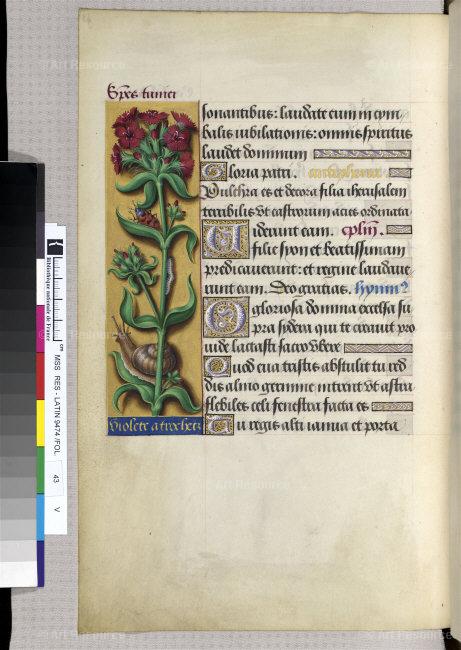 Spēs tumer
sonantibus: laudate eum in cym
balis iubilationis: omnis spiritus
laudet dominum
Gloria patri. antiphona
Pulchra es et decora filia iherusalem
terribilis vt castrorum acies ordinata
Viderunt eam. cplm.
filie syon et beatissimam
predicauerunt: et regine laudaue
runt eam. Deo gratias. hymn9
O gloriosa domina excelsa su
pra sydera qui te creauit pro
uide lactasti sacro vbere
Quod eua tristis abstulit tu red
dis almo germine intrent vt astra
flebiles celi fenestra facta es
Tu regis alti ianua et porta
Violete a trochetz
Bibliothèque nationale de France
cm
MSS RES - LATIN 9474 /FOL
43
V
Art Resource